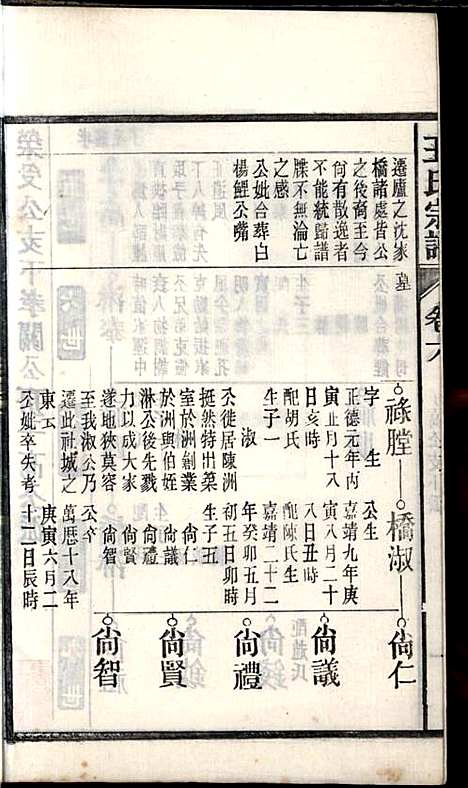 王氏宗譜
卷六
遷廬之沈家
橋諸處皆公
之後裔至今
尙有散逸者
不能統歸譜
牒不無淪亡
之感
公妣合葬白
楊鯉公嘴
墓
祿膛
橋淑
尙仁
字 生
正德元年丙
寅正月十八
日亥時
配胡氏
生子一
淑
公徙居陳洲
挺然特出菓
室於洲創業
於洲與伯姪
淋公後先戮
力以成大家
遂地狹莫容
至我淑公乃
遷此社城之
東云
公妣卒失考
公生
嘉靖九年庚
寅八月二十
八日丑時
配陳氏生
嘉靖二十二
年癸卯五月
初五日卯時
生子五
尙仁
尙議
尙禮
尙賢
尙智
公卒
萬曆十八年
庚寅六月二
十二日辰時
尙議
尙禮
尙賢
尙智